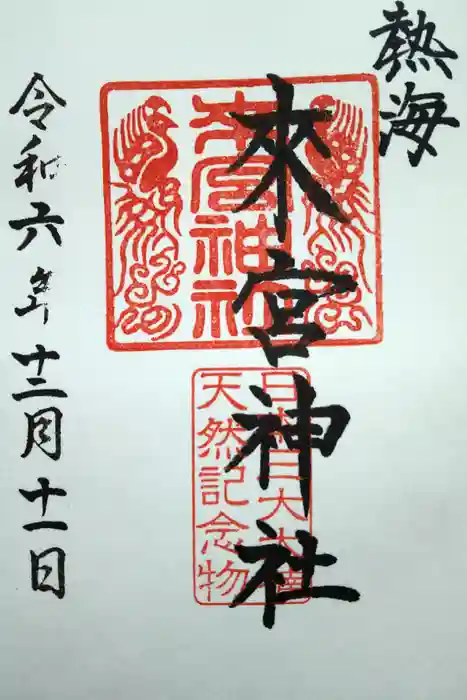 熱海
來宮神社
來宮神社
日本三大大楠
天然記念物
令和六年十二月十一日